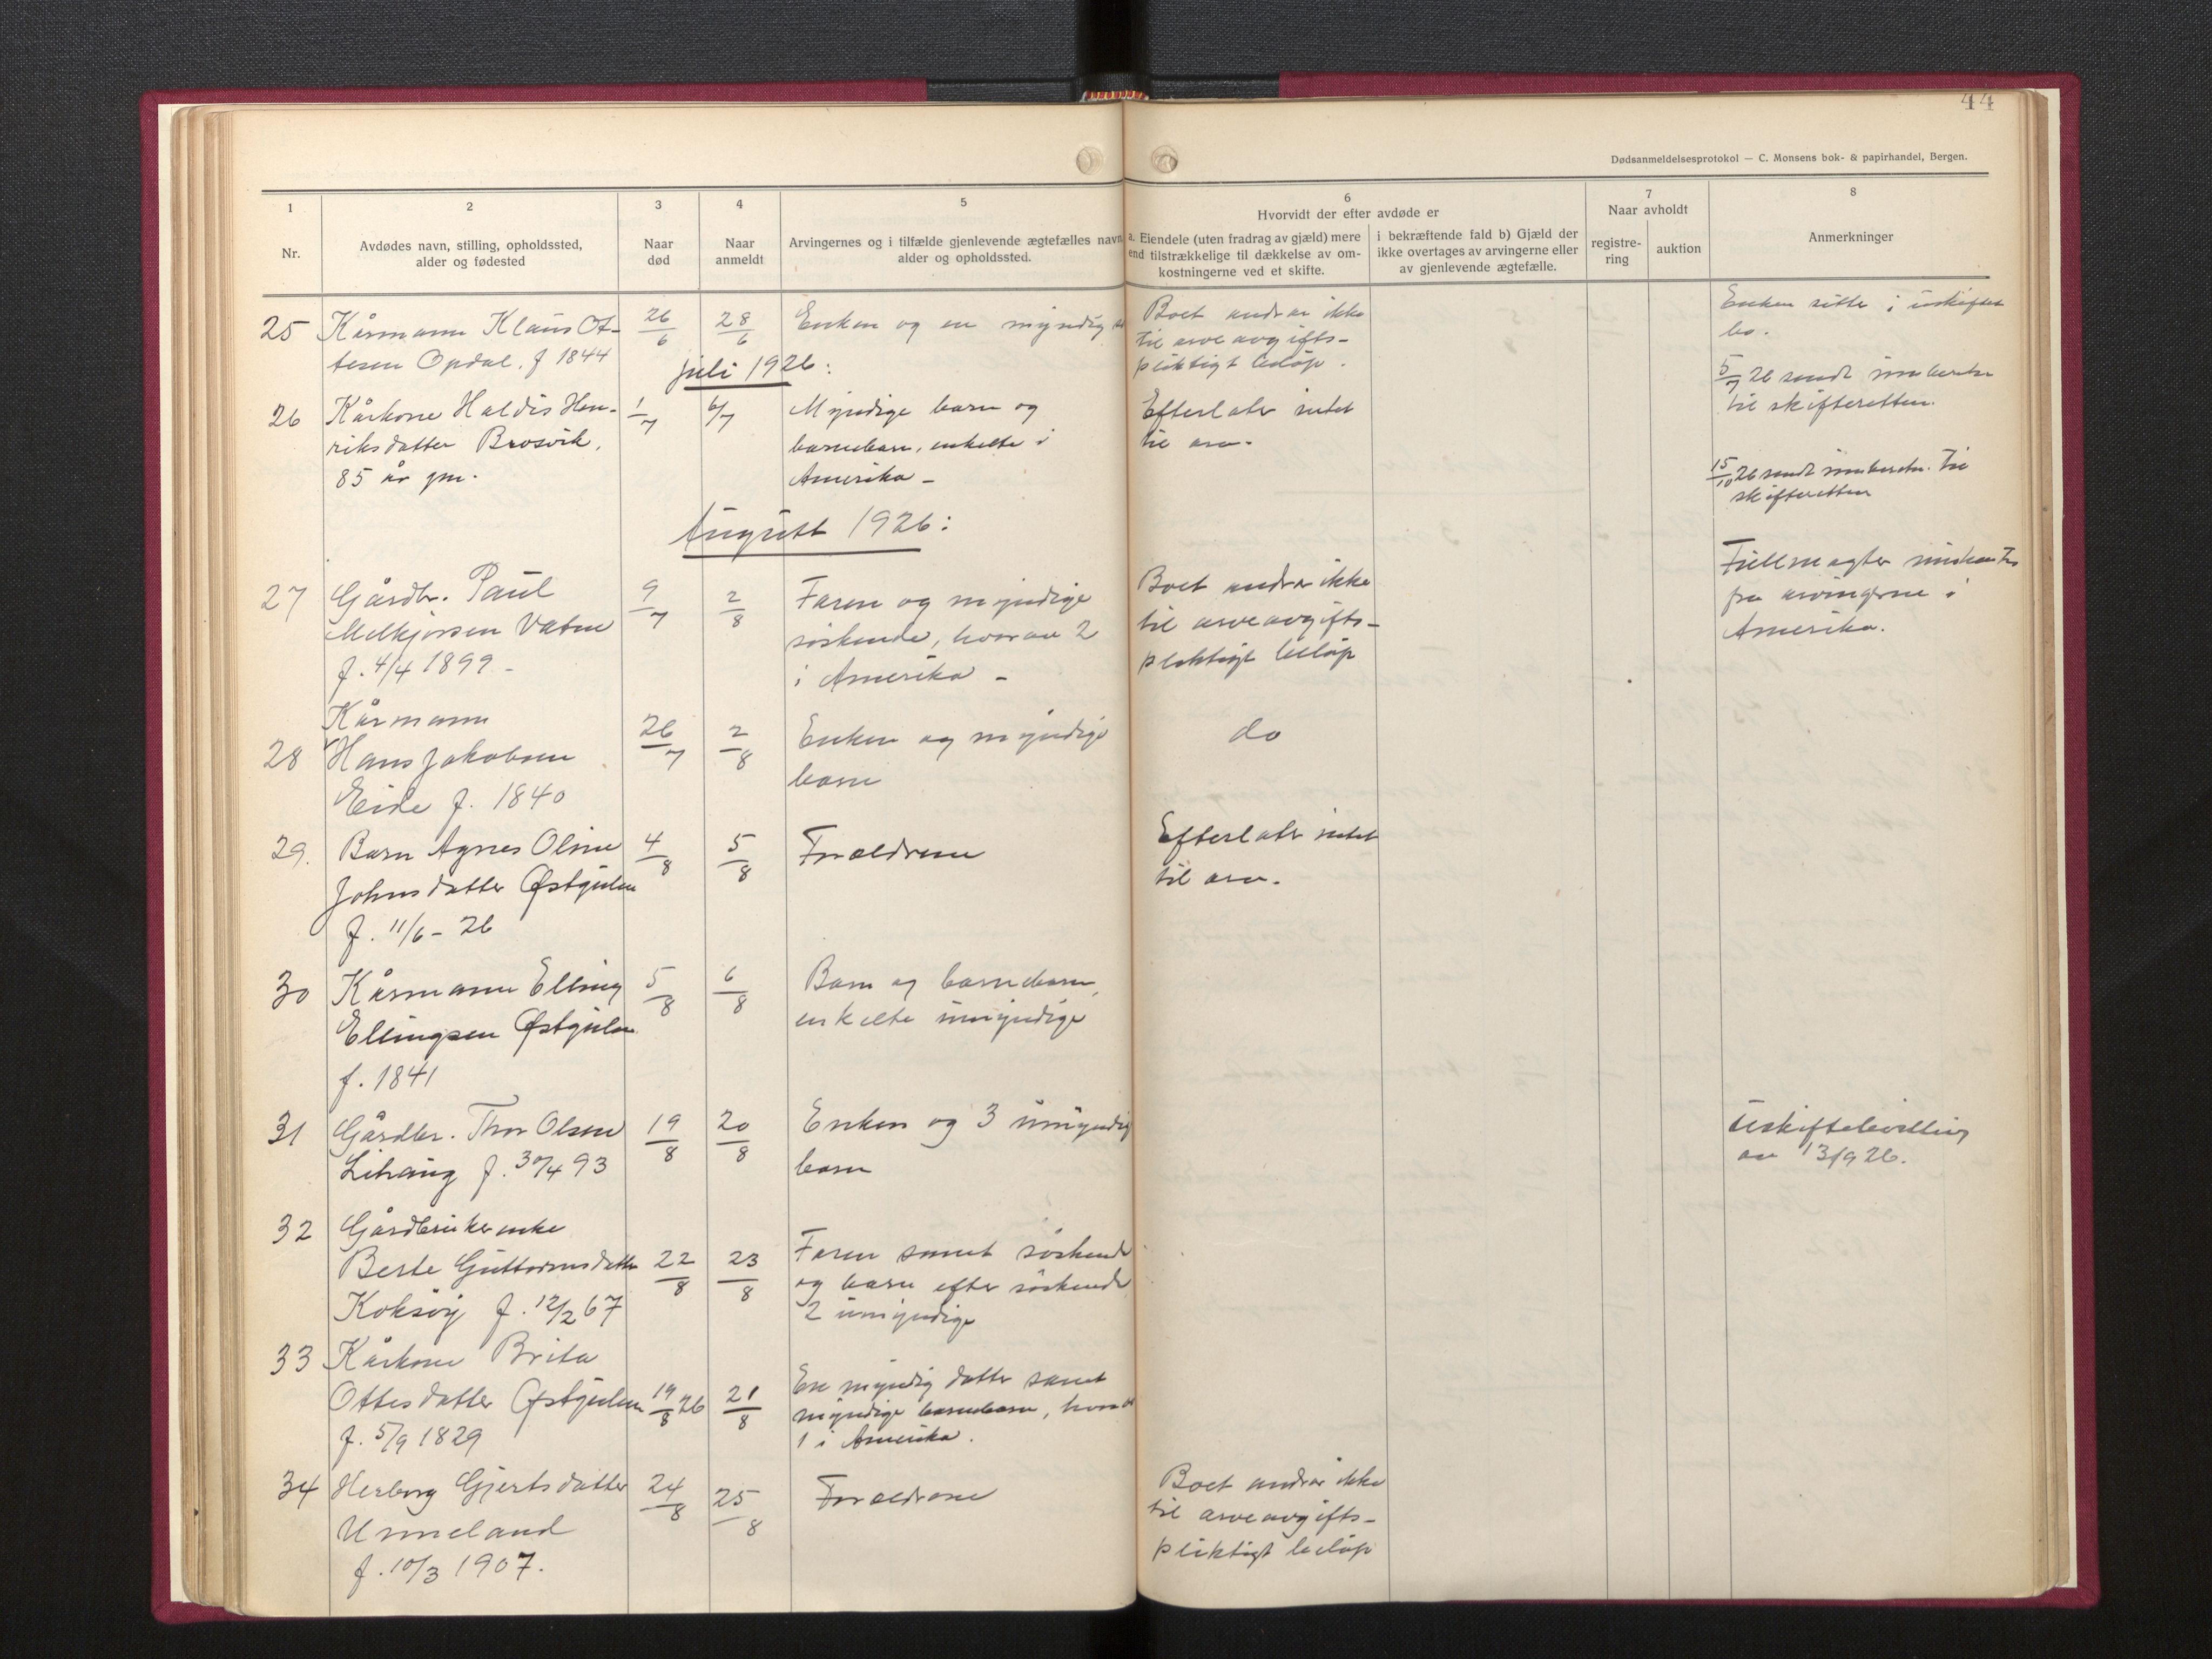 44
Dødsanmeldelsesprotokol — C. Monsens bok- & papirhandel, Bergen.
1
2
3
4
5
6
7
8
Nr.
Avdødes navn, stilling, opholdssted,
alder og fødested
Naar
død
Naar
anmeldt
Arvingernes og i tilfælde gjenlevende ægtefælles navn,
alder og opholdssted.
Hvorvidt der efter avdøde er
a. Eiendele (uten fradrag av gjæld) mere
end tilstrækkelige til dækkelse av om-
kostningerne ved et skifte.
i bekræftende fald b) Gjæld der
ikke overtages av arvingerne eller
av gjenlevende ægtefælle.
Naar avholdt
registre-
ring
auktion
Anmerkninger
25
Kårmann Klaus Ot-
tesen Opdal. f 1844
26/6
28/6
Enken og en myndig
Boet andrar ikke
til arveavgifts-
pliktigt beløp.
Enken sitte i uskiftet
bo.
5/7 26 sendt innberetn
til skifteretten.
juli 1926:
26
Kårkone Haldis Hen-
riksdatter Brosvik,
85 år gm.
1/7
6/7
Myndige barn og
barnebarn, enkelte i
Amerika -
Efterlate intet
til arv.
15/10 26 sendt innberetn. til
skifteretten
August 1926:
27
Gårdbr. Paul
Melkjorsen Vatne
f. 4/4 1899 -
9/7
2/8
Faren og myndige
søskende, hvorav 2
i Amerika -
Boet andrar ikke
til arveavgifts-
pliktigt beløp
Fullmagter
fra arvingerne i
Amerika.
28
Kårmann
Hans Jakobsen
Eide f. 1840
26/7
2/8
Enken og myndige
barn
do
29.
Barn Agnes Oline
Johnsdatter Østgulen
f. 11/6 - 26
4/8
5/8
Forældrene
Efterlate intet
til arv.
30
Kårmann Elling
Ellingsen Østgulen
f. 1841
5/8
6/8
Barn og barnebarn,
enkelte umyndige
31
Gårdbr. Thor Olsen
Lihaug f. 30/4 93
19/8
20/8
Enken og 3 umyndig
barn
Uskiftebevilling
av 13/9 26.
32
Gårdbrukerenke
Berte Guttormsdatter
Koksøy f. 12/2 67
22/8
23/8
Faren samt søskende
og barn efter søskende
2 umyndige
33
Kårkone Brita
Ottesdatter Østgulen
f. 5/9 1829
19/8 26
21/8
En myndig datter samt
myndige barnebarn, hvorav
1 i Amerika.
34
Herborg Gjertsdatter
Unneland
f. 10/3 1907.
24/8
25/8
Forældrene
Boet andrar ikke
til arveavgifts-
pliktigt beløp